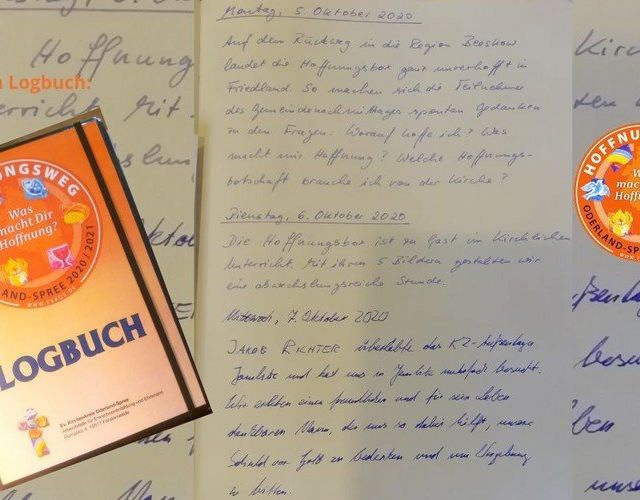 Logbuch:
Hoffnung
NGSWEG
Was
macht Dir
Hoffnung?
LAND-SPREE 2020/2021
LOGBUCH
Ev. Kirchenkreis Oderland-Spree
Arbeitsstelle für Erwachsenenbildung und Ehrenamt
Domplatz 4, 15517 Fürstenwalde
Montag, 5. Oktober 2020
Auf dem Rückweg in die Region Beeskow
landet die Hoffnungsbox ganz unverhofft in
Friedland. So machen sich die Teilnehmer
des Gemeindenachmittages spontan Gedanken
zu den Fragen: Worauf hoffe ich? Was
macht mir Hoffnung? Welche Hoffnungs-
botschaft brauche ich von der Kirche?
Dienstag, 6. Oktober 2020
Die Hoffnungsbox ist zu Gast im Kirchlichen
Unterricht. Mit ihren 5 Bildern gestalten wir
eine abwechslungsreiche Stunde.
Mittwoch, 7. Oktober 2020
JAKOB RICHTER überlebte das KZ-Außenlager
Jamlitz und hat uns in Jamlitz mehrfach besucht.
Wir erlebten einen freundlichen und für sein Leben
dankbaren Mann, der uns so dabei hilft, unsere
Schuld vor Gott zu bedenken und um Vergebung
zu bitten.
Kirch
HOFFNUN
Was
mach
Hoffn
ODERLAND-SPREE